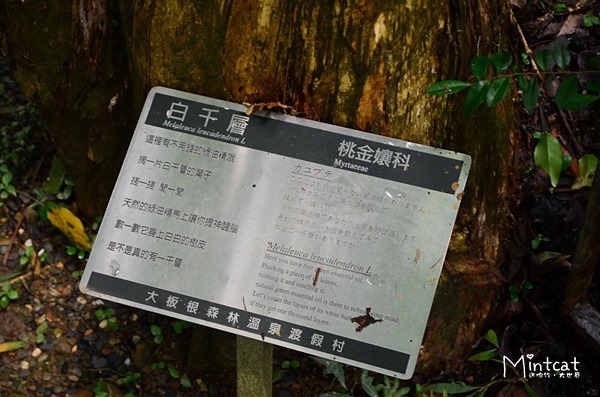 白千層
Melaleuca leucadendron L.
桃金孃科
Myrtaceae
這裡有不用錢的綠油精哦
摘一片白千層的葉子
搓一搓 聞一聞
天然的綠油精馬上讓你提神醒腦
數一數它身上白白的樹皮
是不是真的有一千層
カユプテ
Melaleuca leucadendron L.
Here, you have free green essential oil.
Plucking a piece of leaves,
rubbing it and smelling it,
natural green essential oil is there to refresh your mind.
Let's count the layers of its white bark
if they get one thousand layers.
大板根森林溫泉渡假村
Mintcat